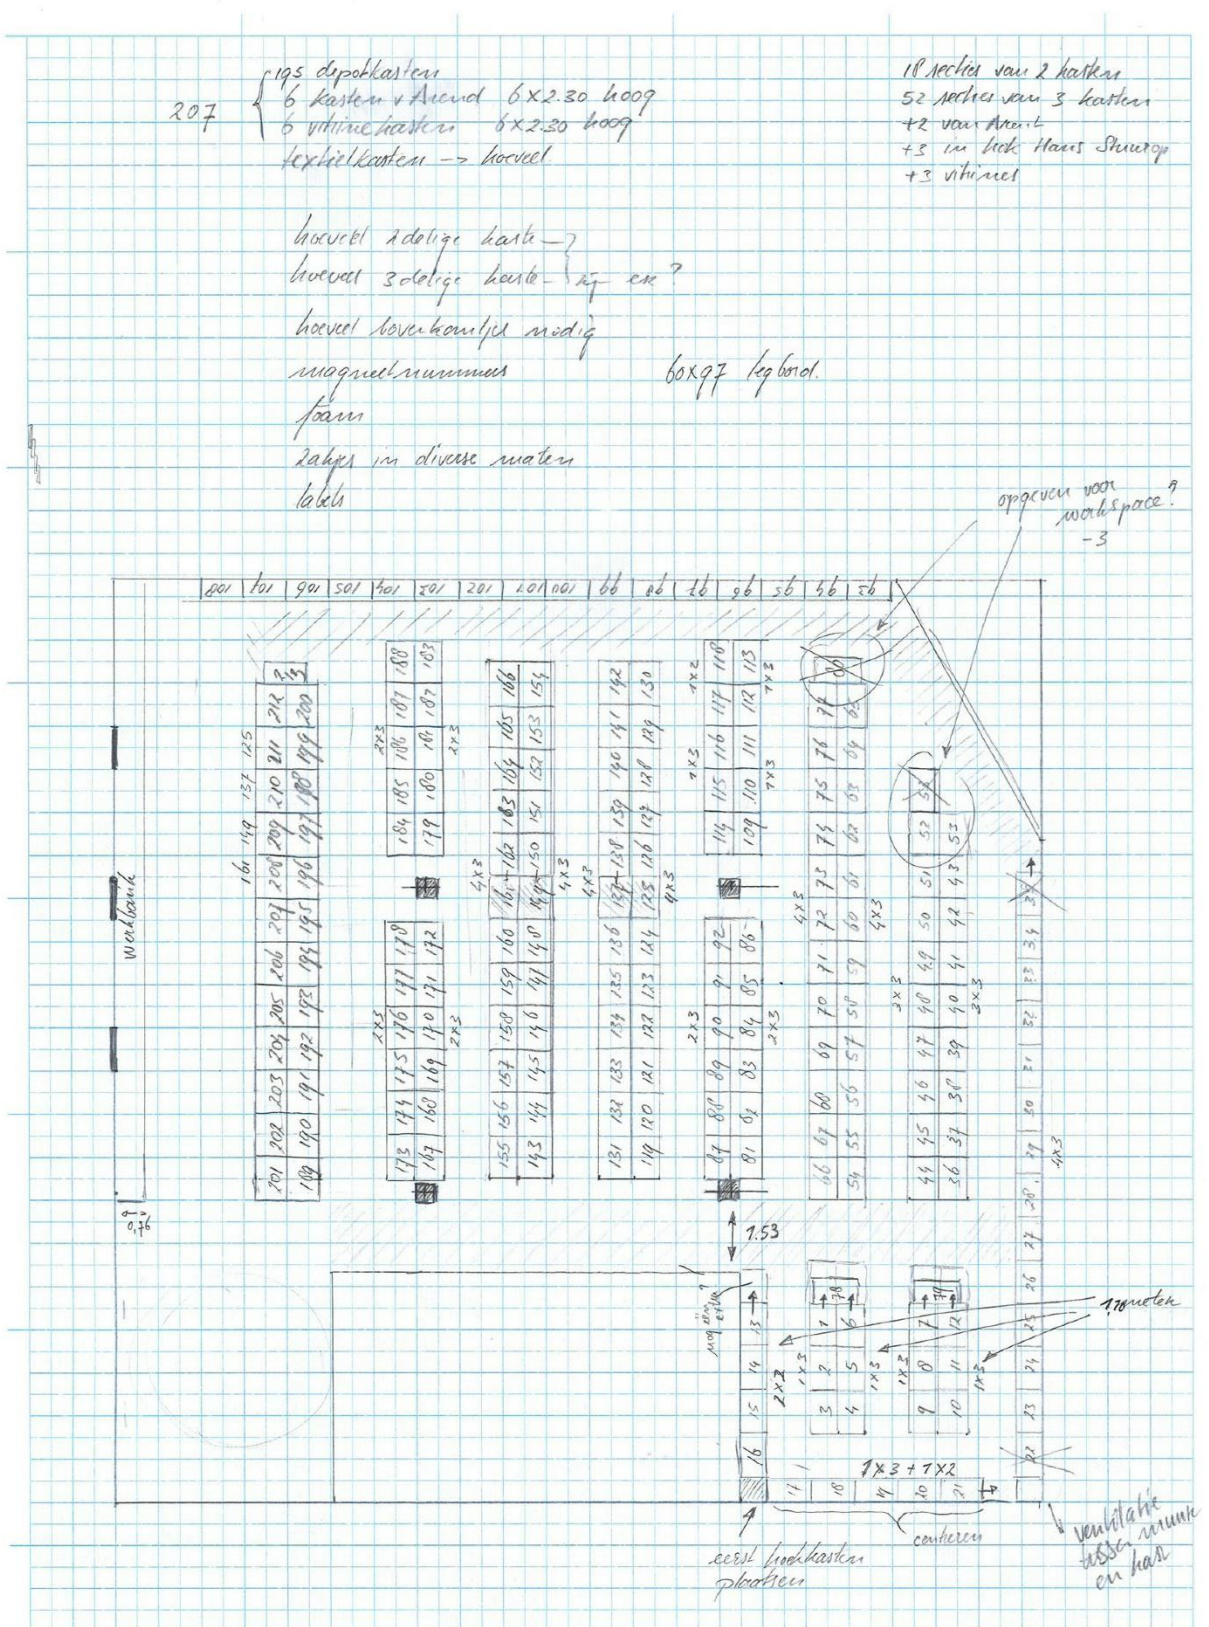 195 depotkasten
6 kasten v Arend 6x2.30 hoog
207
6 vitrinekasten 6x2.30 hoog
textielkasten -> hoeveel
18 secties van 2 kasten
52 secties van 3 kasten
+2 van Arend
+3 in hok Hans Stuurop
+3 vitrines
hoeveel 2delige kaste
hoeveel 3delige kaste
hoeveel bovenkantjes nodig
magneetnummers
60x97 legbord.
foam
zakjes in diverse maten
labels
opgeven voor
workspace?
-3
108 107 106 105 104 103 102 101 100 99 98 97 96 95 94 93
161 149 137 125
201 202 203 204 205 206 207 208 209 210 211 212
189 190 191 192 193 194 195 196 197 198 199 200
184 185 186 187 188
179 180 181 182 183
2x3
2x3
173 174 175 176 177 178
167 168 169 170 171 172
2x3
2x3
155 156 157 158 159 160 161 162 163 164 165 166
143 144 145 146 147 148 149 150 151 152 153 154
4x3
4x3
131 132 133 134 135 136 137 138 139 140 141 142
119 120 121 122 123 124 125 126 127 128 129 130
4x3
4x3
114 115 116 117 118
109 110 111 112 113
1x3
1x2
1x3
1x3
87 88 89 90 91 92
81 82 83 84 85 86
2x3
2x3
66 67 68 69 70 71 72 73 74 75 76 77
54 55 56 57 58 59 60 61 62 63 64 65
80
4x3
4x3
44 45 46 47 48 49 50 51 52 53
36 37 38 39 40 41 42 43 53
3x3
3x3
22 23 24 25 26 27 28 29 30 31 32 33 34 35
4x3
werkbank
0,76
1.53
nog één
extra?
16 15 14 13
2x2
3 2 1 78
4 5 6
1x3
1x3
9 8 7 79
10 11 12
1x3
1x3
1,70 meter
1x3 + 1x2
17 18 19 20 21
centreren
eerst hoekkasten
plaatsen
ventilatie
tussen muur
en kast